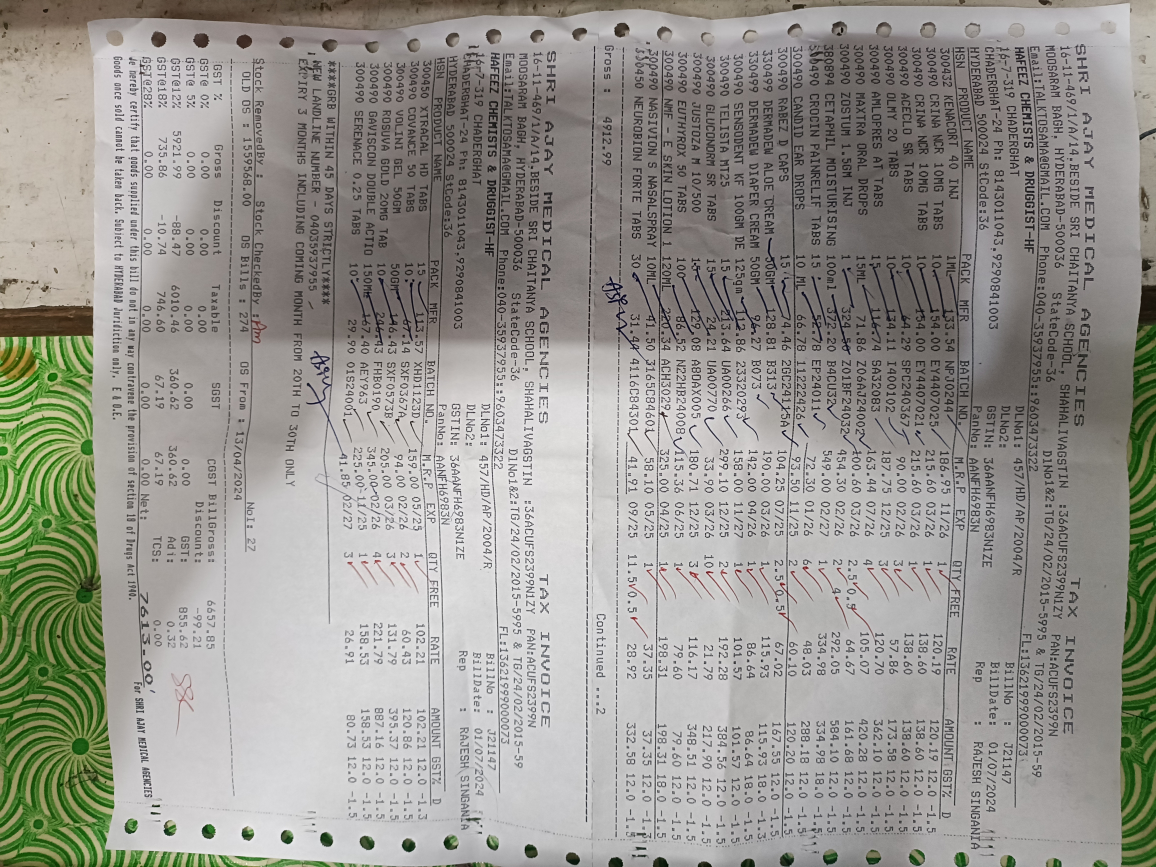 SHRI AJAY MEDICAL AGENCIES TAX INVOICE
16-11-469/1/A/14,BESIDE SRI CHAITANYA SCHOOL, SHAHALIVAGSTIN :36ACUFS2399N1ZY PAN:ACUFS2399N
MOOSARAM BAGH, HYDERABAD-500036 StateCode-36 DlNo1&2:TG/24/02/2015-5995 & TG/24/02/2015-59
Email:TALKTOSAMA@GMAIL.COM Phone:040-35937955::9603473322 FL:13621999000073
HAFEEZ CHEMISTS & DRUGGIST-HF DLNo1: 457/HD/AP/2004/R BillNo : J21147
16-7-319 CHADERGHAT DLNo2: BillDate: 01/07/2024
CHADERGHAT-24 Ph: 8143011043,9290841003 GSTIN: 36AANFH6983N1ZE Rep : RAJESH SINGANIA
HYDERABAD 500024 StCode:36 PanNo: AANFH6983N
HSN PRODUCT NAME PACK MFR BATCH NO. M.R.P EXP QTY FREE RATE AMOUNT GST% D
300432 KENACORT 40 INJ 1ML 133.54 NPJ0244 186.95 11/26 1 120.19 120.19 12.0 -1.5
300490 CRINA NCR 10MG TABS 10 154.00 EY4407025 215.60 03/26 1 138.60 138.60 12.0 -1.5
300490 CRINA NCR 10MG TABS 10 154.00 EY4407021 215.60 03/26 1 138.60 138.60 12.0 -1.5
300490 ACECLO SR TABS 10 64.29 SPC240367 90.00 02/26 3 57.86 173.58 12.0 -1.5
300490 OLMY 20 TABS 10 134.11 E400102 187.75 12/26 3 120.70 362.10 12.0 -1.5
300490 AMLOPRES AT TABS 15 116.74 SA32083 163.44 07/26 4 105.07 420.28 12.0 -1.5
300490 MAXTRA ORAL DROPS 15ML 71.86 Z06AJ24002 100.60 03/26 2.5 0.5 64.67 161.68 12.0 -1.5
300490 ZOSTUM 1.5GM INJ 1 324.50 Z01BF24032 454.30 02/26 2 292.05 584.10 12.0 -1.5
380894 CETAPHIL MOISTURISING 100ml 372.20 B4ACU35 549.00 02/27 1 334.98 334.98 18.0 -1.5
300490 CROCIN PAINRELIF TABS 15 EP24011 72.30 01/26 6 48.03 288.18 12.0 -1.5
300490 CANDID EAR DROPS 10 ML 66.78 11222426 93.50 11/25 2 60.10 120.20 12.0 -1.5
300490 RABEZ D CAPS 15 74.46 2GC24115A 104.25 07/25 2.5 0.5 67.02 167.55 12.0 -1.5
330499 DERMADEW ALOE CREAM 50GM 128.81 B315 190.00 04/26 1 115.93 115.93 18.0 -1.3
330499 DERMADEW DIAPER CREAM 50GM 96.27 B073 142.00 03/26 1 86.64 86.64 18.0 -1.5
300490 SENSODENT KF 100GM DE 125gm 112.86 2332029 158.00 11/27 1 101.57 101.57 12.0 -1.5
300490 TELISTA MT25 15 213.64 UA00266 299.10 12/26 2 192.28 384.56 12.0 -1.5
300490 GLUCONORM SR TABS 15 24.21 UA00770 33.90 03/26 10 21.79 217.90 12.0 -1.5
300490 JUSTOZA M 10/500 15 129.08 A8DAX005 180.71 01/26 3 116.17 348.51 12.0 -1.5
300490 EUTHYROX 50 TABS 100 N22HB24008 115.36 06/25 1 79.60 79.60 12.0 -1.5
300490 NMF - E SKIN LOTION 1 120ML 220.34 ACH3029 325.00 04/25 1 198.31 198.31 18.0 -1.5
300490 NASIVION S NASALSPRAY 10ML 41.50 3165C84601 58.10 05/25 1 37.35 37.35 12.0 -1.5
300450 NEUROBION FORTE TABS 30 31.44 4116C84301 41.91 09/25 11.5 0.5 28.92 332.58 12.0 -1.5
Gross : 4912.99 Continued ...2
SHRI AJAY MEDICAL AGENCIES TAX INVOICE
16-11-469/1/A/14,BESIDE SRI CHAITANYA SCHOOL, SHAHALIVAGSTIN :36ACUFS2399N1ZY PAN:ACUFS2399N
MOOSARAM BAGH, HYDERABAD-500036 StateCode-36 DlNo1&2:TG/24/02/2015-5995 & TG/24/02/2015-59
Email:TALKTOSAMA@GMAIL.COM Phone:040-35937955::9603473322 FL:13621999000073
HAFEEZ CHEMISTS & DRUGGIST-HF DLNo1: 457/HD/AP/2004/R BillNo : J21147
16-7-319 CHADERGHAT DLNo2: BillDate: 01/07/2024
CHADERGHAT-24 Ph: 8143011043,9290841003 GSTIN: 36AANFH6983N1ZE Rep : RAJESH SINGANIA
HYDERABAD 500024 StCode:36 PanNo: AANFH6983N
HSN PRODUCT NAME PACK MFR BATCH NO. M.R.P EXP QTY FREE RATE AMOUNT GST% D
300450 XTRACAL HD TABS 15 113.57 XHD1123D 159.00 05/25 1 102.21 102.21 12.0 -1.3
300490 COVANCE 50 TABS 10 67.14 SXF0367A 94.00 02/26 2 60.43 120.86 12.0 -1.5
300490 VOLINI GEL 50GM 50GM 146.43 SXF0573B 205.00 03/26 3 131.79 395.37 12.0 -1.5
300490 ROSUVA GOLD 20MG TAB 10 246.43 FHB0190 345.00 02/26 4 221.79 887.16 12.0 -1.5
300490 GAVISCON DOUBLE ACTIO 150M AEY963 225.00 11/25 1 158.53 158.53 12.0 -1.5
300490 SERENACE 0.25 TABS 10 29.90 01824001 41.85 02/27 3 26.91 80.73 12.0 -1.5
****GRB WITHIN 45 DAYS STRICTLY****
NEW LANDLINE NUMBER - 04035937955
EXPIRY 3 MONTHS INCLUDING COMING MONTH FROM 20TH TO 30TH ONLY
Stock RemovedBy : Stock CheckedBy : NoI: 27
OLD OS : 1559568.00 OS Bills : 274 OS From : 13/04/2024
GST % Gross Discount Taxable SGST CGST BillGross: 6657.85
GST@ 0% 0.00 0.00 0.00 0.00 Discount: -99.21
GST@ 5% 0.00 0.00 0.00 GST: 855.62
GST@12% 5921.99 -88.47 6010.46 360.62 360.62 Adj: 0.32
GST@18% 735.86 -10.74 746.60 67.19 67.19 TCS: 0.00
GST@28% 0.00 0.00 0.00 0.00 0.00 Net: 7613.00
We hereby certify that goods supplied under this bill do not in any way contravene the provision of section 18 of Drugs Act 1940.
Goods once sold cannot be taken back. Subject to HYDERABAD Juridiction only. E & O.E. For SHRI AJAY MEDICAL AGENCIES